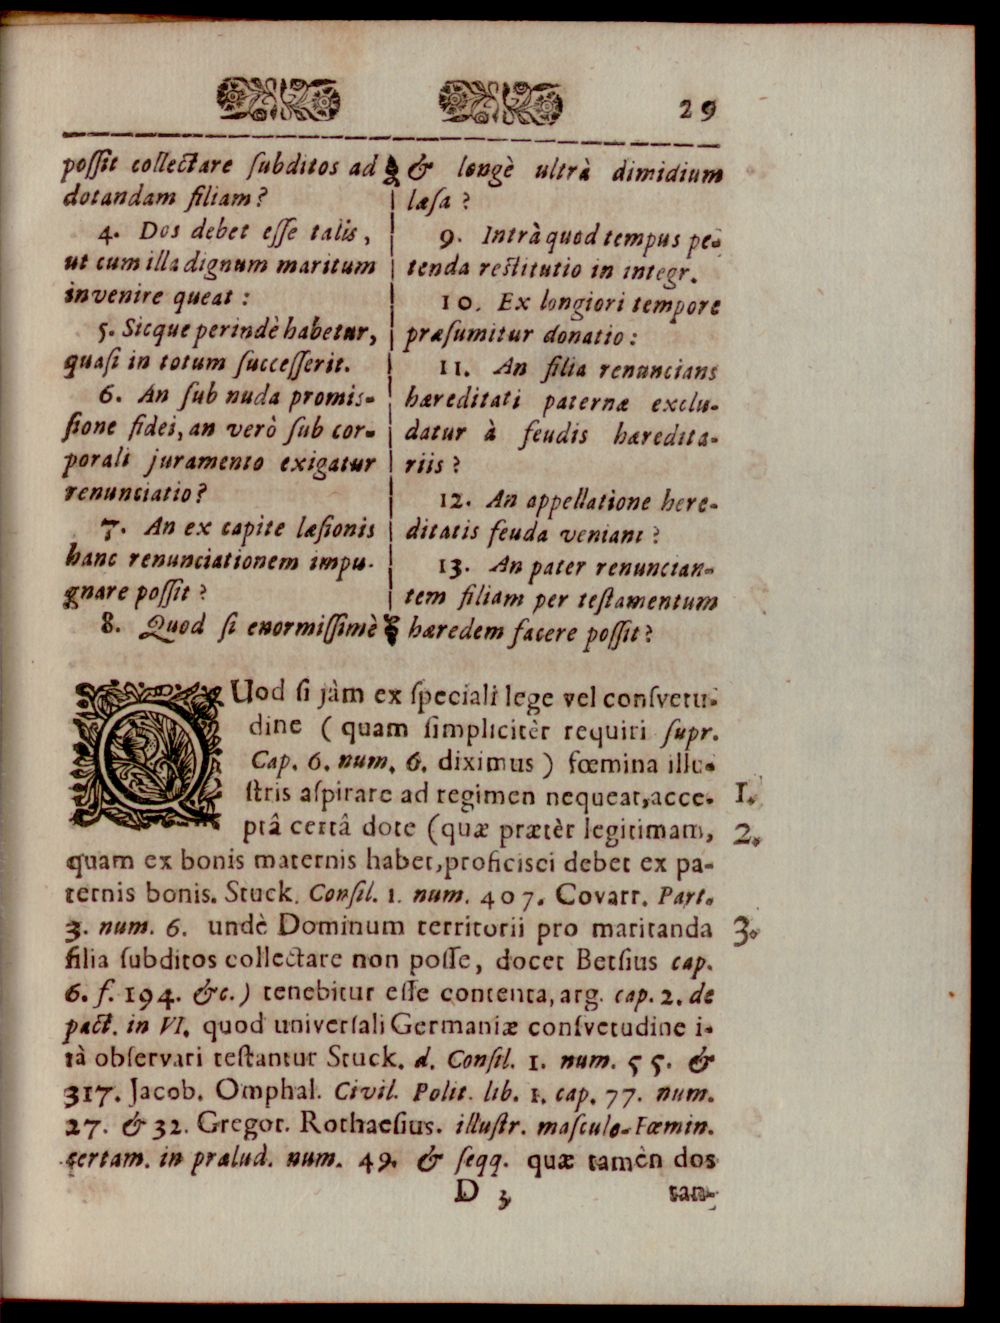 29
possit collectare subditos ad
dotandam filiam?
4. Dos debet esse talis,
ut cum illa dignum maritum
invenire queat:
5. Sicque perindè habetur,
quasi in totum successerit.
6. An sub nuda promis-
sione fidei, an verò sub cor-
porali juramento exigatur
renunciatio?
7. An ex capite læsionis
hanc renunciationem impu-
gnare possit?
8. Quod si enormissimè
& longè ultrà dimidium
læsa?
9. Intrà quod tempus pe-
tenda restitutio in integr.
10. Ex longiori tempore
præsumitur donatio:
11. An filia renuncians
hæreditati paternæ exclu-
datur à feudis hæredita-
riis?
12. An appellatione here-
ditatis feuda veniant?
13. An pater renuncian-
tem filiam per testamentum
hæredem facere possit?
QUod si jàm ex speciali lege vel consvetu-
dine (quam simplicitèr requiri supr.
Cap. 6. num. 6. diximus) fœmina illu-
stris aspirare ad regimen nequeat, acce- 1.
ptâ certâ dote (quæ prætèr legitimam, 2.
quam ex bonis maternis habet, proficisci debet ex pa-
ternis bonis. Stuck. Consil. 1. num. 407. Covarr. Part.
3. num. 6. undè Dominum territorii pro maritanda 3.
filia subditos collectare non posse, docet Betsius cap.
6. f. 194. &c.) tenebitur esse contenta, arg. cap. 2. de
pact. in VI. quod universali Germaniæ consvetudine i-
tà observari testantur Stuck. d. Consil. 1. num. 55. &
317. Jacob. Omphal. Civil. Polit. lib. 1. cap. 77. num.
27. & 32. Gregor. Rothaesius. illustr. masculo-Fœmin.
certam. in prælud. num. 49. & seqq. quæ tamèn dos
D 3 tan-